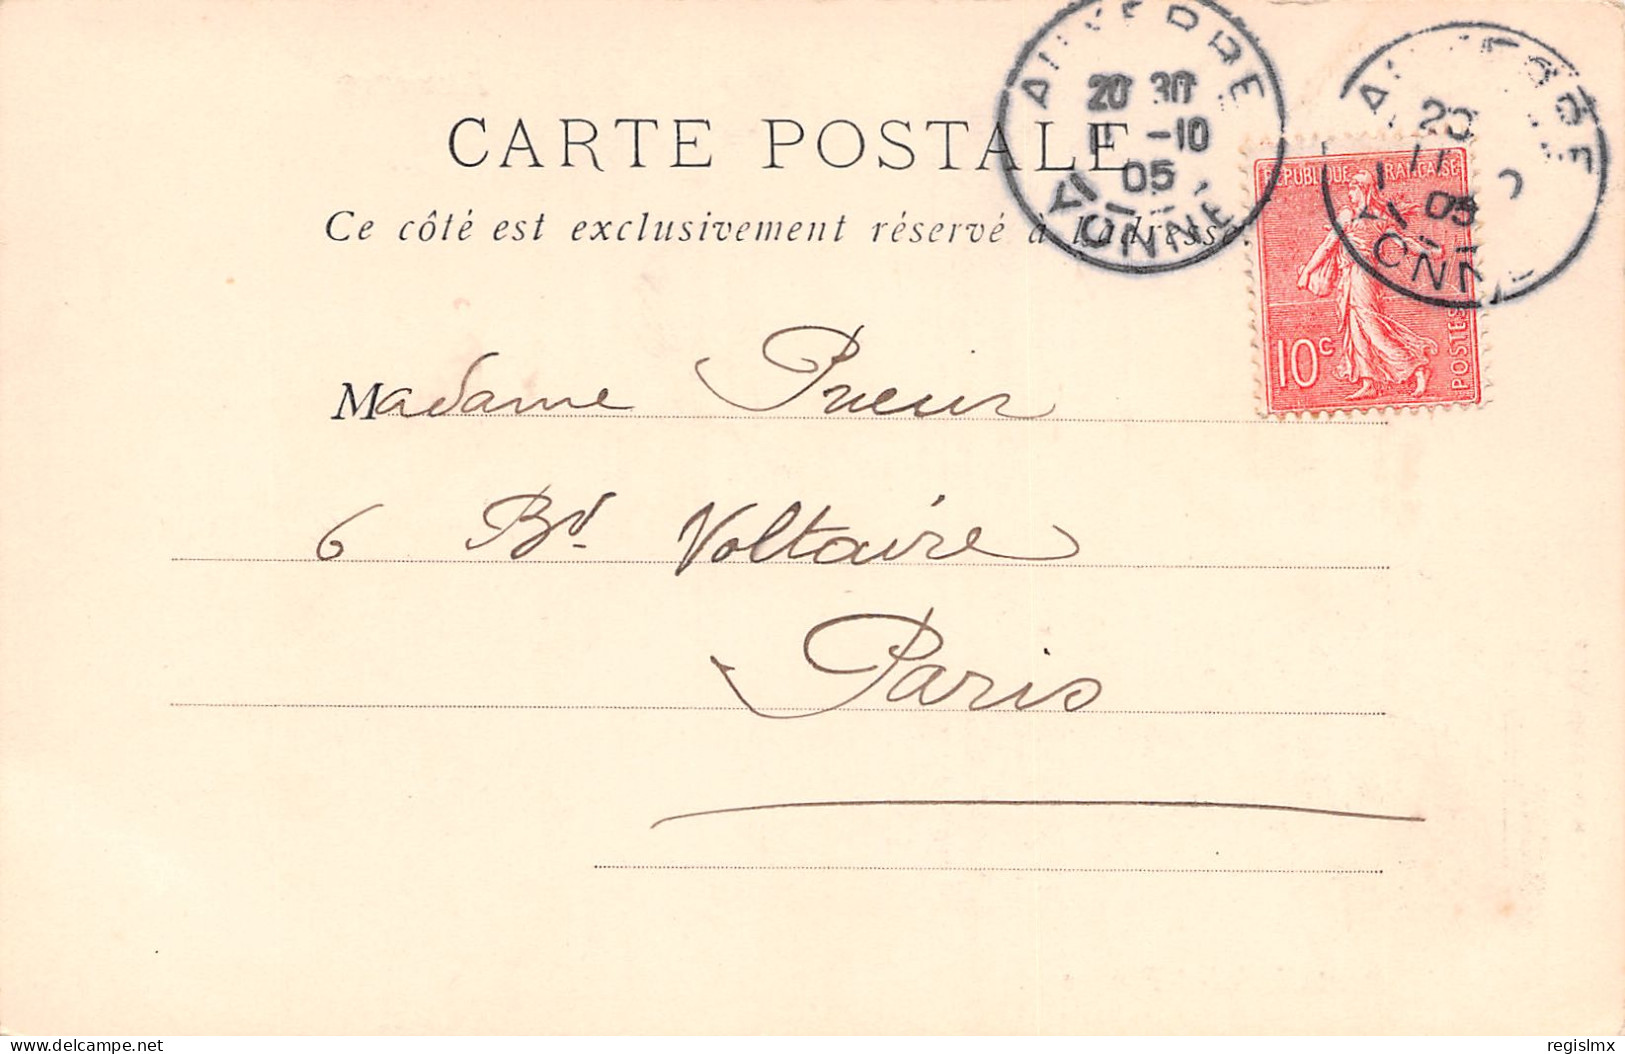 CARTE POSTALE
Ce côté est exclusivement réservé à l'adresse.
AUXERRE
20 30
11 -10
05
YONNE
RÉPUBLIQUE FRANÇAISE
10c
POSTES
20
11
05
YONNE
Madame Prieur
6 Bd Voltaire
Paris
delcampe.net
regislmx